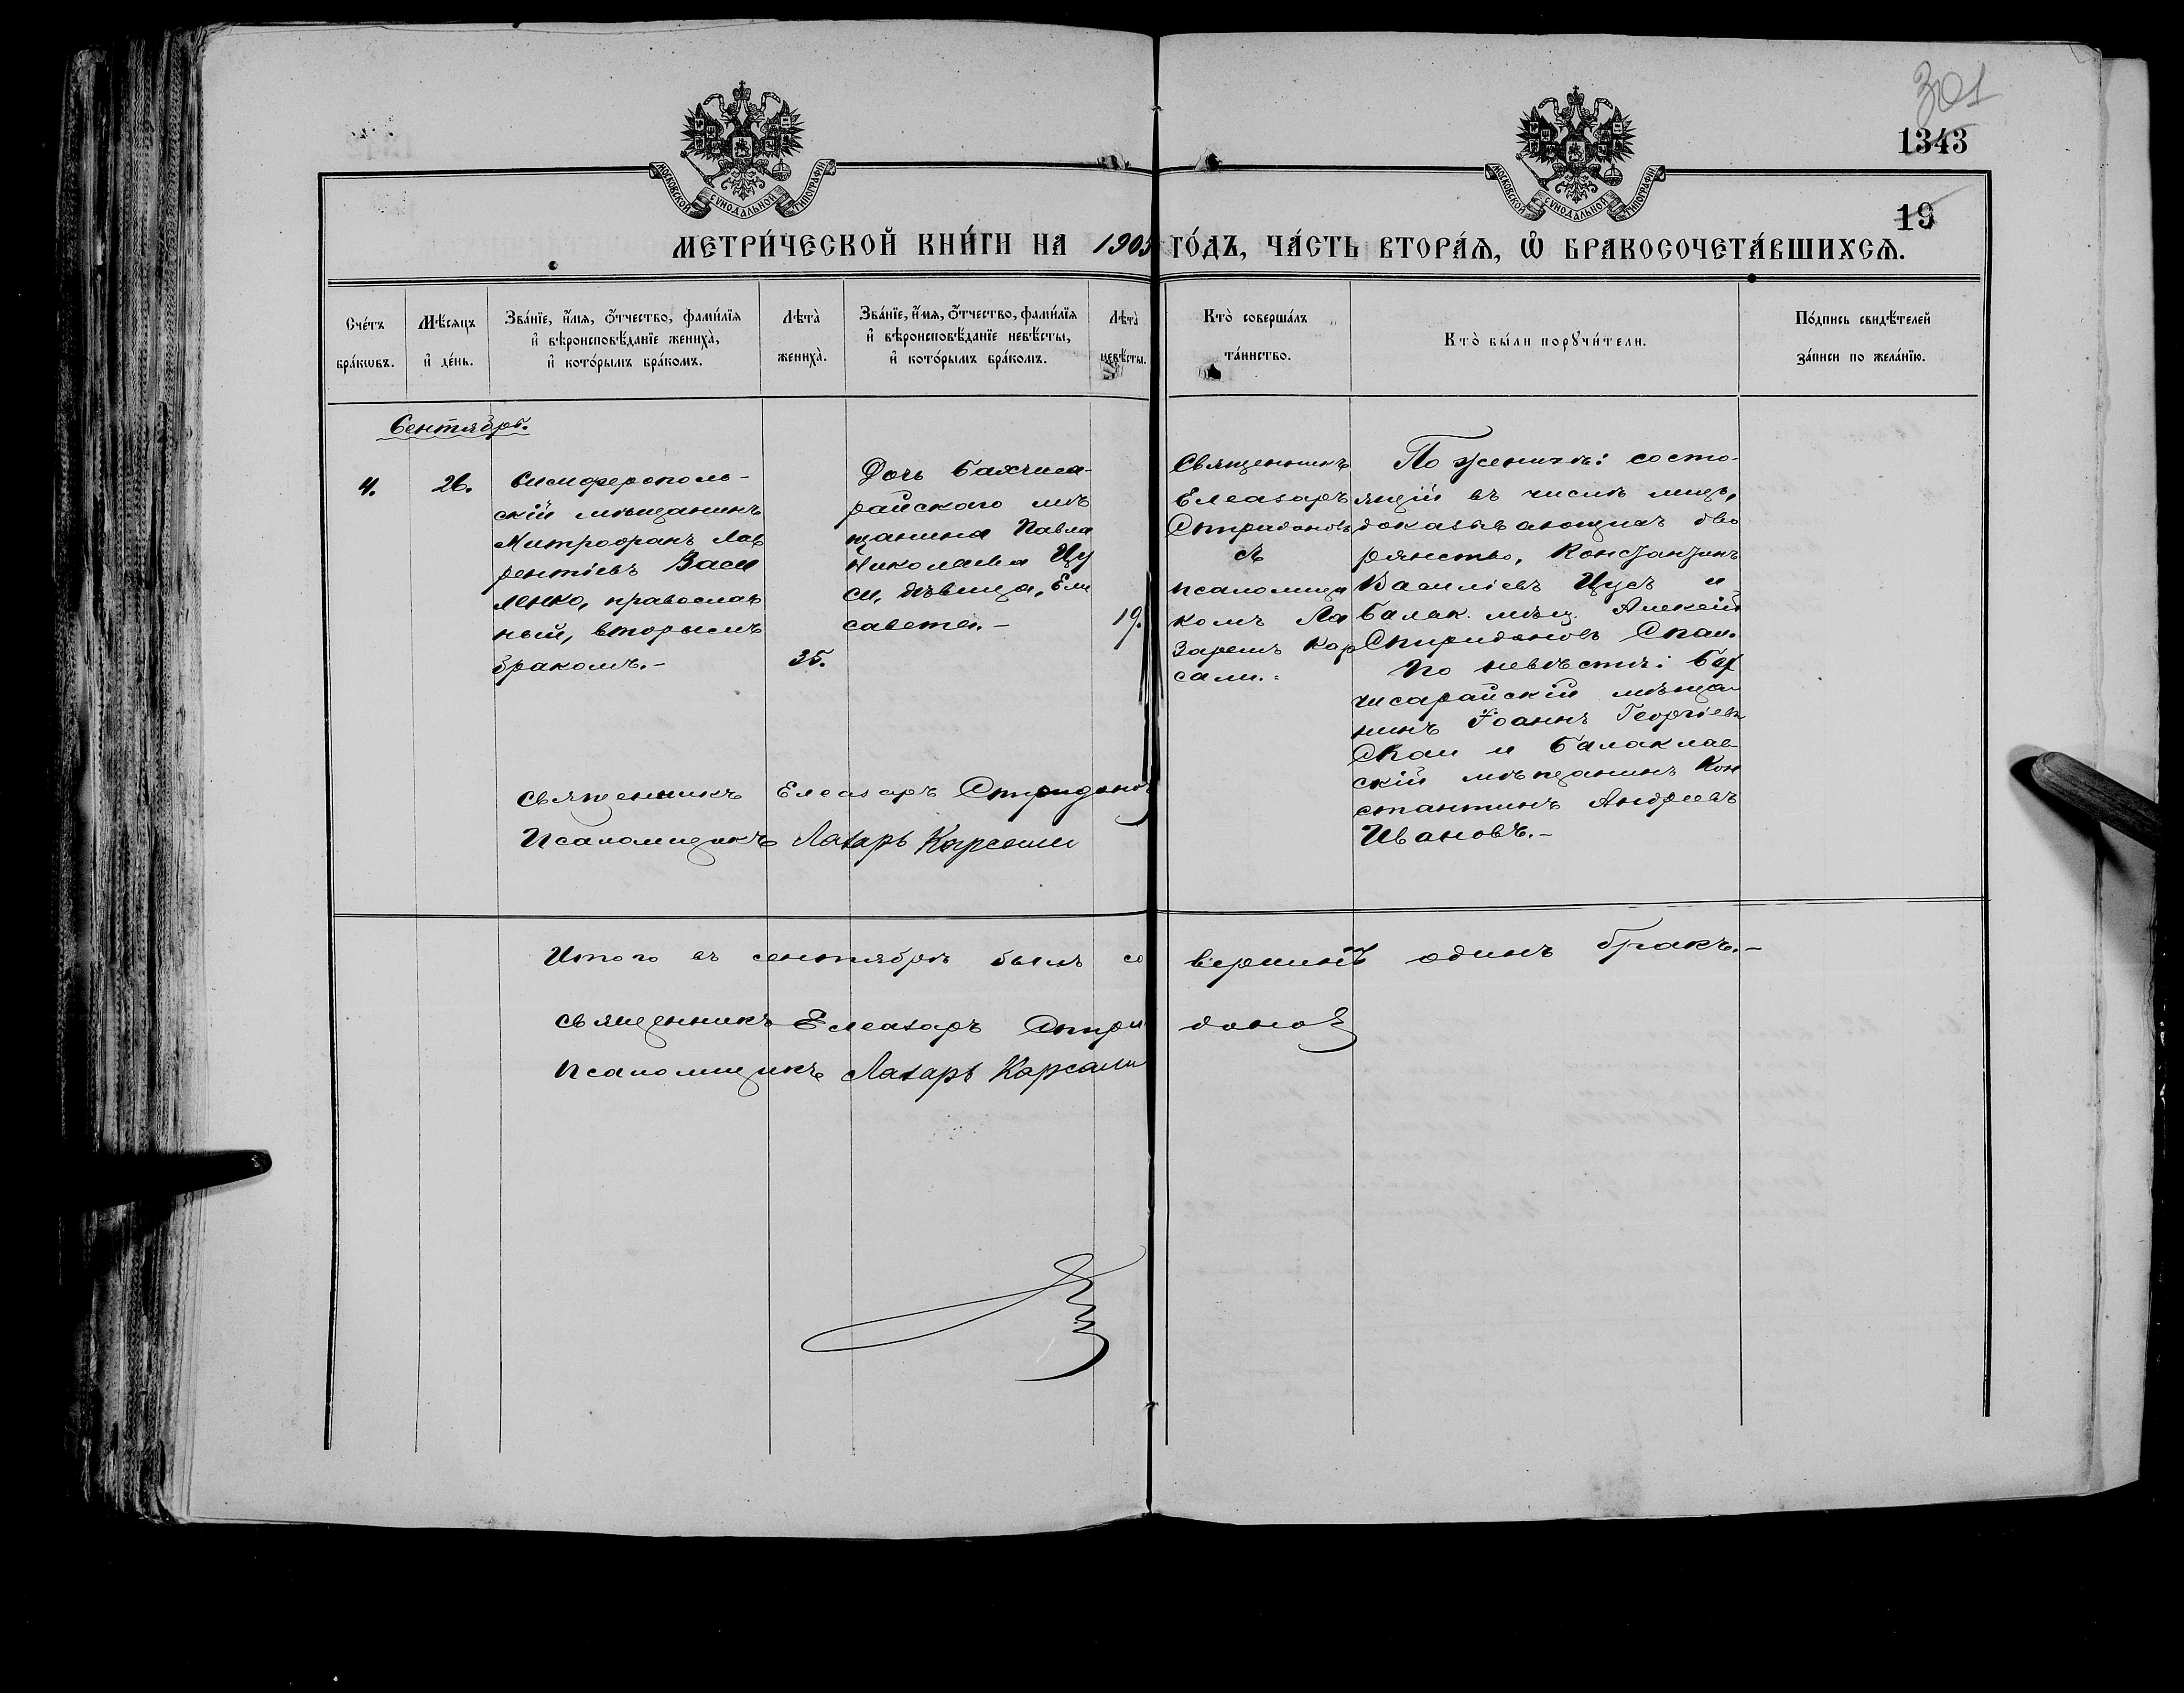 301
1343
19
МОСКОВСКОЙ СѴНОДАЛЬНОЙ ТИПОГРАФІИ
МОСКОВСКОЙ СѴНОДАЛЬНОЙ ТИПОГРАФІИ
МЕТРИ́ЧЕСКОЙ КНИ́ГИ НА 1905 ГО́ДЪ, ЧА́СТЬ ВТОРА́Ѧ, Ѽ БРАКОСОЧЕТА́ВШИХСѦ.
Сче́тъ
бра́кѡвъ.
Мѣ́сяцъ
и҆ де́нь.
Зва́нїе, и҆́мя, ѻ҆́тчество, фами́лїя
и҆ вѣроисповѣ́данїе жениха̀,
и҆ кото́рымъ бра́комъ.
Лѣта̀
жениха̀.
Зва́нїе, и҆́мя, ѻ҆́тчество, фами́лїя
и҆ вѣроисповѣ́данїе невѣ́сты,
и҆ кото́рымъ бра́комъ.
Лѣта̀
невѣ́сты.
Кто̀ соверша́лъ
та́инство.
Кто̀ бы́ли порꙋчи́тели.
По́дпись свидѣ́телей
за́писи по жела́нїю.
Сентябрь.
4.
26.
Симферополь-
скій мѣщанинъ
Митрофанъ Лав
рентіевъ Васи
ленко, православ
ный, вторымъ
бракомъ.-
35.
Дочь Бахчиса-
райскаго мѣ
щанина Павла
Николаева Цу
си, дѣвица, Ели
савета.-
19.
Священникъ
Елеазаръ
Спиридоновъ
съ
псаломщи
комъ Ла
заремъ Кар
сали.-
По женихѣ: состо-
ящій въ числѣ лицъ,
доказывающихъ дво
рянство, Константинъ
Василіевъ Цусъ и
Балак. мѣщ. Алексій
Спиридоновъ Спаи.
По невѣстѣ: Бах
чисарайскій мѣща-
нинъ Іоаннъ Георгіевъ
Спаи и Балаклав-
скій мѣщанинъ Кон
стантинъ Андреевъ
Ивановъ.-
Священникъ Елеазаръ Спиридоновъ
Псаломщикъ Лазарь Карсали
Итого въ сентябрѣ былъ совершенъ одинъ бракъ.-
Священникъ Елеазаръ Спиридоновъ
Псаломщикъ Лазарь Карсали